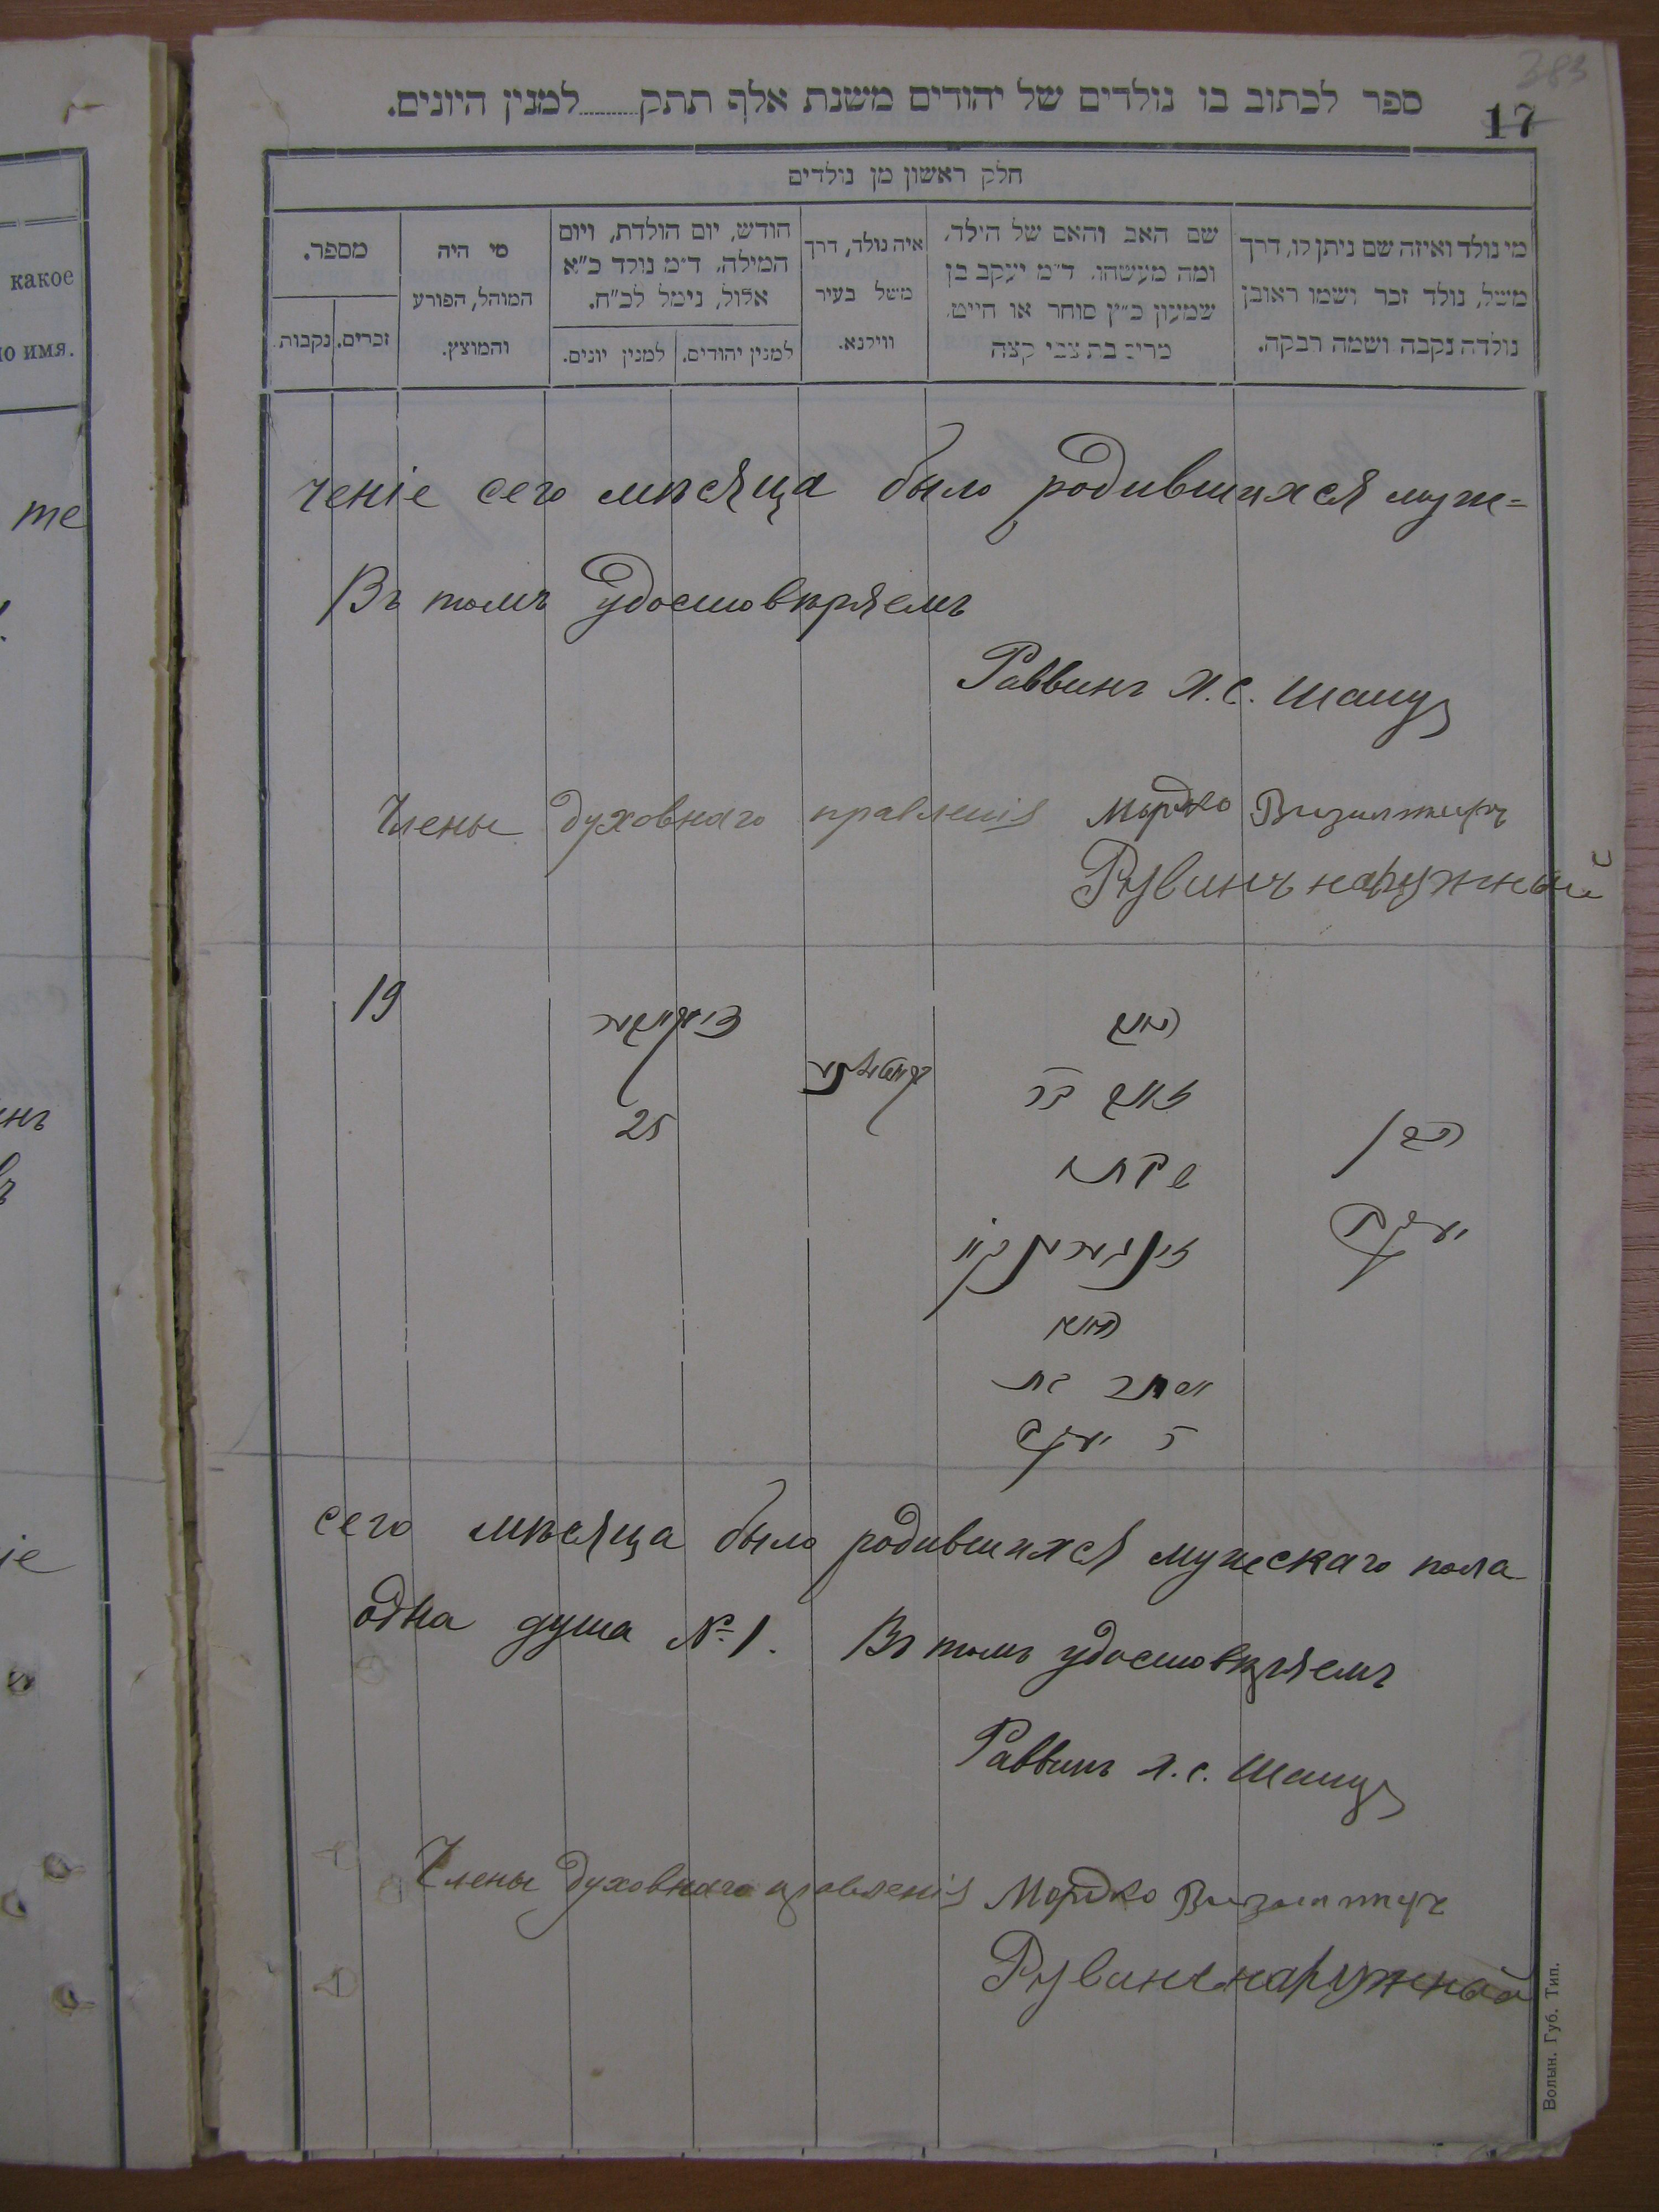 383
17
ספר לכתוב בו נולדים של יהודים משנת אלף תתק..........למנין היונים.
חלק ראשון מן נולדים
מי נולד ואיזה שם ניתן לו, דרך
משל, נולד זכר ושמו ראובן
נולדה נקבה ושמה רבקה.
שם האב והאם של הילד,
ומה מעשהו. ד״מ יעקב בן
שמעון כ״ץ סוחר או חייט.
מרים בת צבי קצה
איה נולד, דרך
משל בעיר
ווילנא.
חודש, יום הולדת, ויום
המילה, ד״מ נולד כ״א
אלול, נימל לכ״ח.
למנין יהודים.
למנין יונים.
מי היה
המוהל, הפורע
והמוצץ.
מספר.
זכרים.
נקבות.
ченіе сего мѣсяца было родившихся муж=
Въ томъ удостовѣряемъ
Раввинъ
Члены духовнаго правленія Мордко
Рувинъ Наружный
19
25
הבן
יעקב
האב
זאב בר
שבתי
האם
אסתר בת
ר יעקב
сего мѣсяца было родившихся мужескаго пола
одна душа № 1. Въ томъ удостовѣряемъ
Раввинъ
Члены духовнаго правленія Мордко
Рувинъ Наружный
Волын. Губ. Тип.
какое
но имя.
те
іе